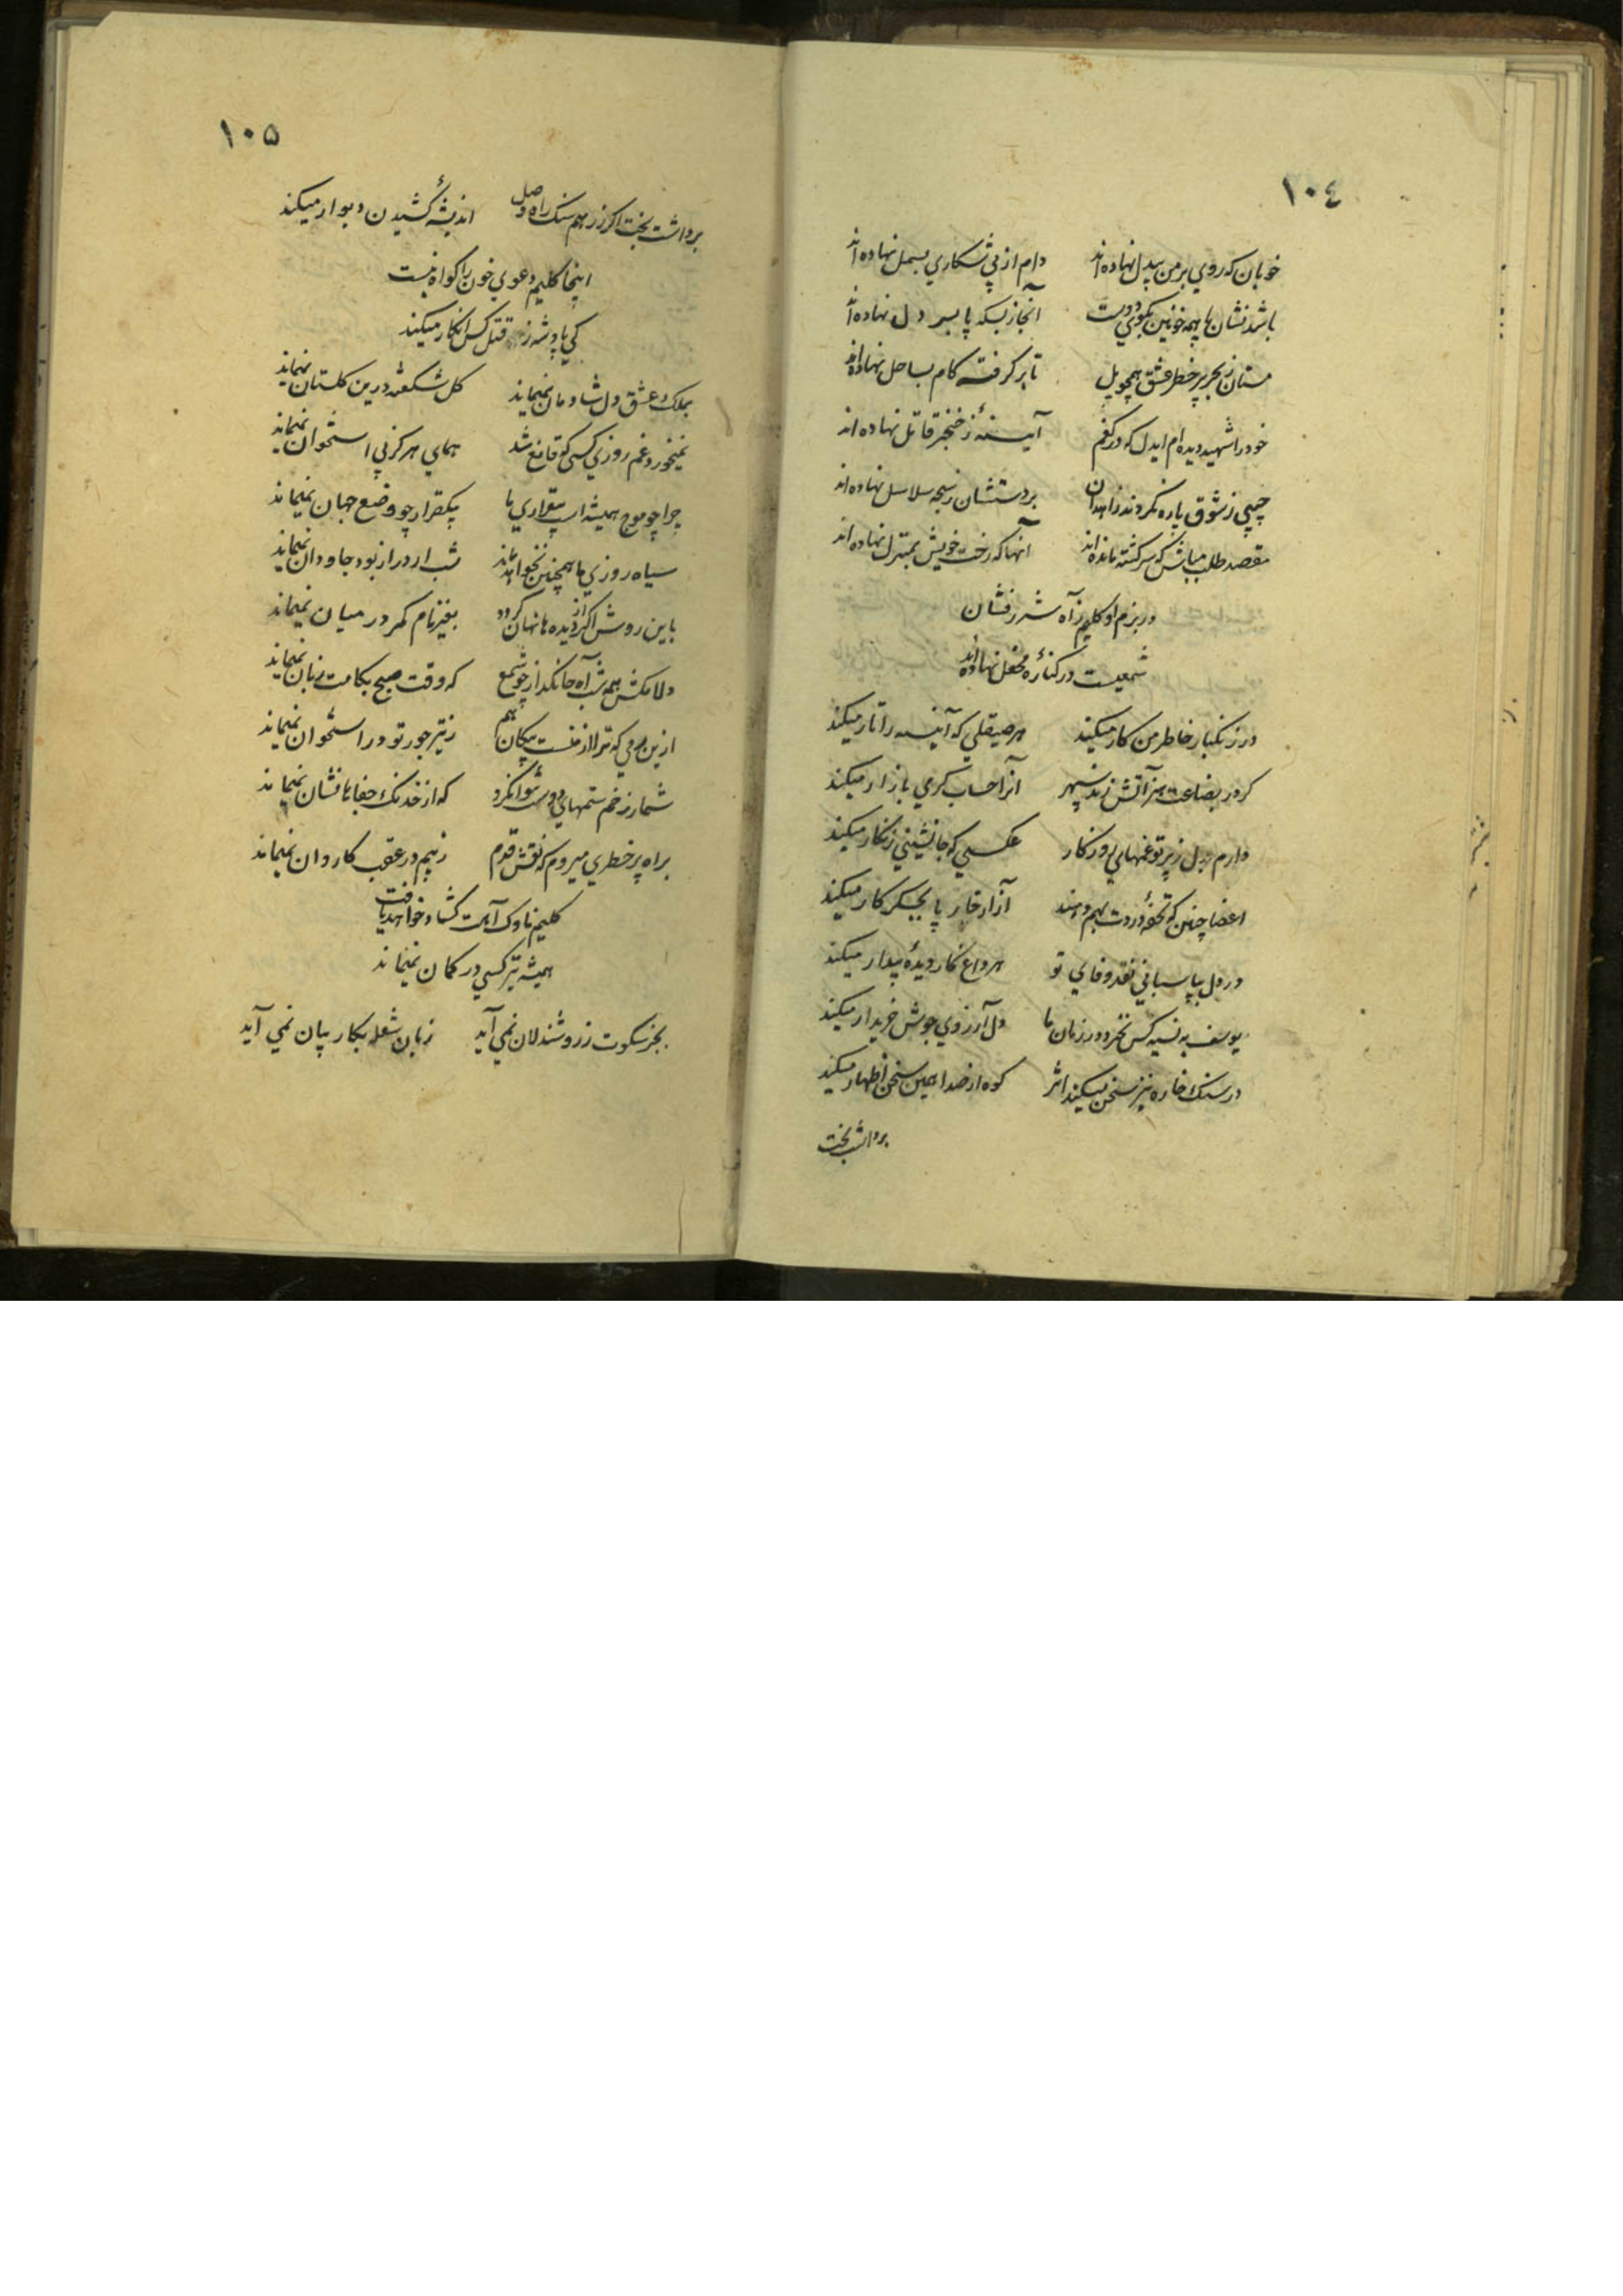 ١٠٤
خوبان که روي بر من بيدل نهاده اند دام از پي شکاري بسمل نهاده اند
باشد نشان پا همه خونين بکوي دوست آنجا ز بسکه پا بسر دل نهاده اند
مستان ز بحر پر خطر عشق همچو پل تا بر گرفته کام بساحل نهاده اند
خود را شهيد ديده ام ايدل که در کفم آيينهٔ ز خنجر قاتل نهاده اند
جيبي ز شوق پاره نکردند زاهدان بر دستشان ز سبحه سلاسل نهاده اند
مقصد طلب مباش که سرکشته مانده اند آنها که رخت خويش بمنزل نهاده اند
در بزم او کليم ز آه شرر فشان
شمعيست در کنارهٔ محفل نهاده اند
در زنکبار خاطر من کار ميکند هر صيقلي که آينه را تار ميکند
کر در بضاعت هنر آتش زند سپهر آنرا حساب کرمي بازار ميکند
دارم بدل ز پرتو غمهاي روزکار عکسي که جانشيني زنکار ميکند
اعضا چنين که تحفهٔ دردت بهم دهند آزار خار پا بجکر کار ميکند
در دل بپاسباني نقد وفاي تو هر داغ کار ديدهٔ بيدار ميکند
يوسف به نسيه کس نخرد در زمان ما دل آرزوي جوش خريدار ميکند
در سنک خاره نيز سخن ميکند اثر کوه از صدا همين سخن اظهار ميکند
برداشت بخت
١٠٥
برداشت بخت اکر ز رهم سنک راه وصل انديشهٔ کشيدن ديوار ميکند
اينجا کليم دعوي خون را کواه نيست
کي پادشه ز قتل کس انکار ميکند
بملک عشق دل شادمان نميماند کل شکفته درين کلستان نميماند
نميخورد غم روزي کسي که قانع شد هماي هرکز بي استخوان نميماند
چرا چو موج هميشه است بيقراري ما بيکقرار چو وضع جهان نميماند
سياه روزي ما همچنين نخواهد ماند شب ار دراز بود جاودان نميماند
باين روش اکر از ديده ها نهان کردد بغير نام کمر در ميان نميماند
دلا مکش همه شب آه جانکداز چو شمع که وقت صبح بکامت زبان نميماند
ازين که ترا از منست پيکان هم ز تير جور تو در استخوان نميماند
شمار زخم ستمهاي دوست نتوانکرد که از خدنک جفاها نشان نميماند
براه پر خطري ميروم که نقش قدم ز بيم در عقب کاروان نميماند
کليم ناوک آهت کشاد خواهد يافت
هميشه تير کسي در کمان نميماند
بجز سکوت ز روشندلان نمي آيد زبان شعله بکار بيان نمي آيد